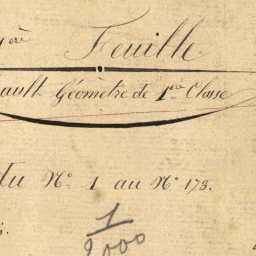 Feuille
ault Géomètre de 1ère Classe
du N° 1 au N° 173.
1
2000